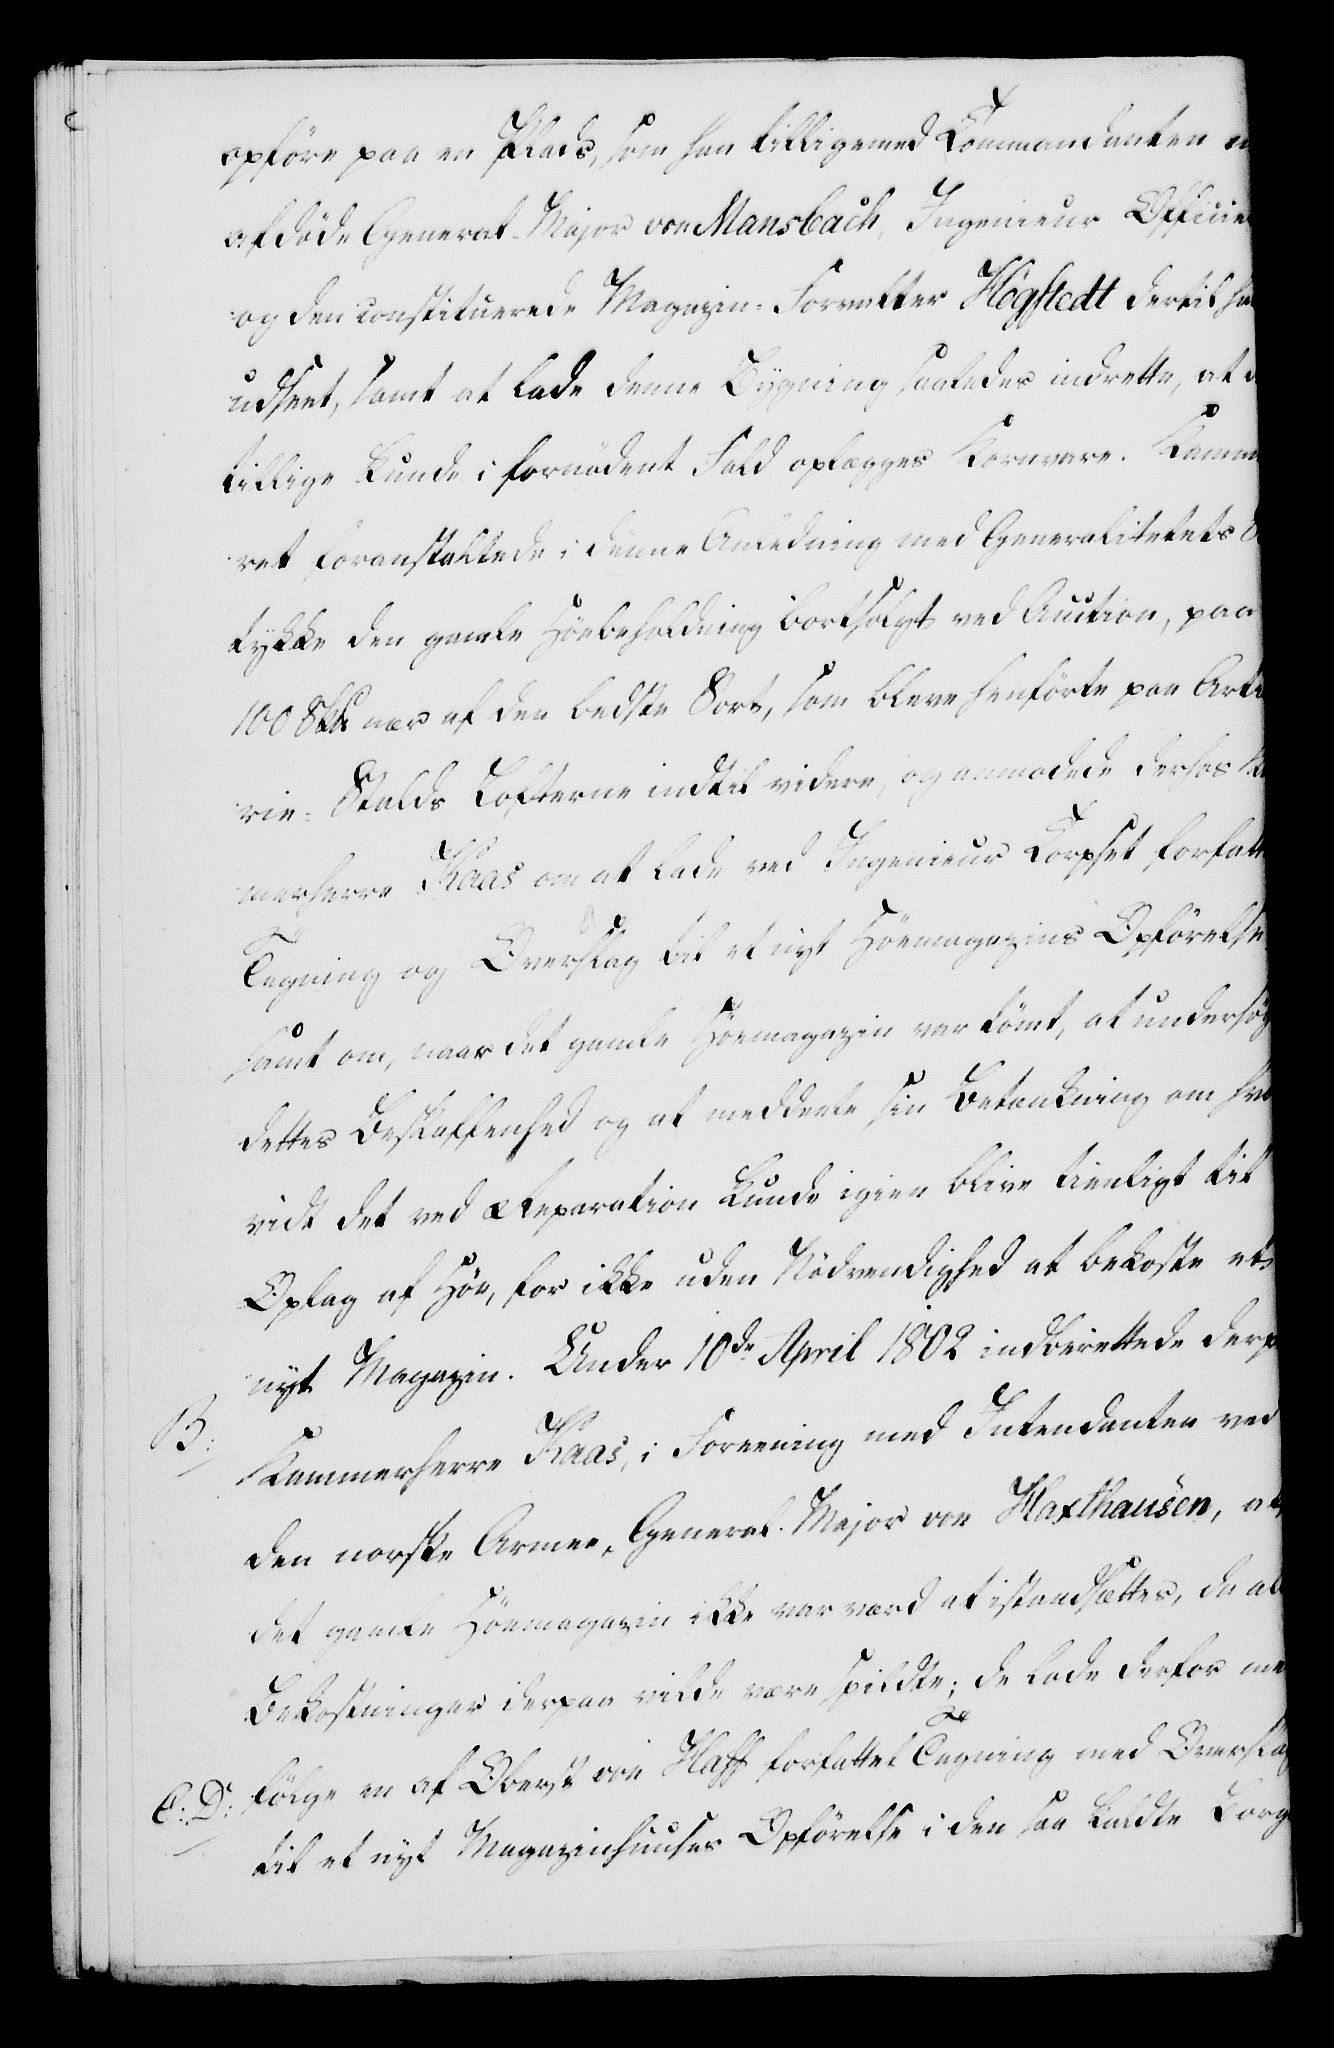 opføre paa en Plads, som han tilligemed Commandanten
afdøde General-Major von Mansbach, Ingenieur Officie
og den constituerede Magazin-Forvalter Høgstedt dertil ha
udseet, samt at lade denne Bygning saaledes indrette, at d
tillige kunde i fornødent Fald oplægges Kornvare. Kamme
ret foranstaltede i denne Anledning med Generalitetets
tykke den gamle Høebeholdning bortsolgt ved Auction, paa
100 nær af den bedste Sort, som bleve henførte paa Arti
rie-Stalds Lofterne indtil videre, og anmodede derhos Ka
merherre Kaas om at lade ved Ingenieur Corpset forfatte
Tegning og Overslag til et nyt Høemagazins Opførelse
samt om, naar det gamle Høemagazin var tømt, at undersøg
dettes Beskaffenhed og at meddeele sin Betænkning om hvo
vidt det ved Reparation kunde igien blive tienligt til
Oplag af Høe, for ikke uden Nødvendighed at bekoste et
nyt Magazin. Under 10de April 1802 indberettede derp
B: Kammerherre Kaas, i Foreening med Intendanten ved
den norske Armee, General-Major von Haxthausen, at
det gamle Høemagazin ikke var værd at istandsættes, da al
Bekostninger derpaa vilde være spildte; de lode derfor me
C: D: følge en af Oberst von Haff forfattet Tegning med Overslag
til et nyt Magazinhuuses Opførelse i den saa kaldte Borg